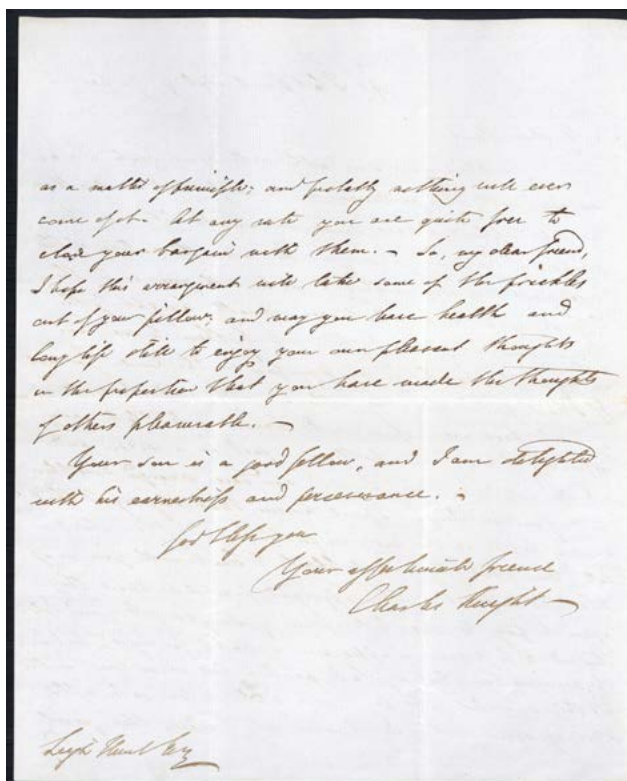 as a matter of principle; and probably nothing will ever
come of it. At any rate you are quite free to
close your bargain with them. – So, my dear friend,
I hope this arrangement will take some of the prickles
out of your pillow; and may you have health and
long life still to enjoy your own pleasant thoughts
in the proportion that you have made the thoughts
of others pleasurable. –
Your son is a good fellow, and I am delighted
with his earnestness and perseverance. –
God bless you
Your affectionate friend
Charles Knight
Leigh Hunt Esq